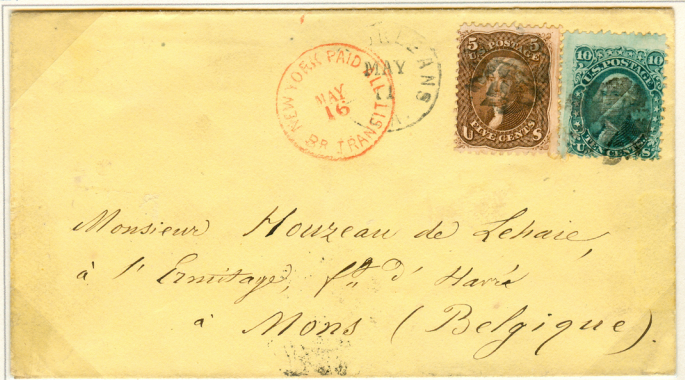 NEW YORK PAID ALL
MAY
16
BR TRANSIT
LEANS
MAY
11
5 5
U.S. POSTAGE
FIVE CENTS
U S
10 10
U.S. POSTAGE
TEN CENTS
U S
Monsieur Houzeau de Lehaie,
à l'Ermitage, fg d'Havré
à Mons (Belgique).